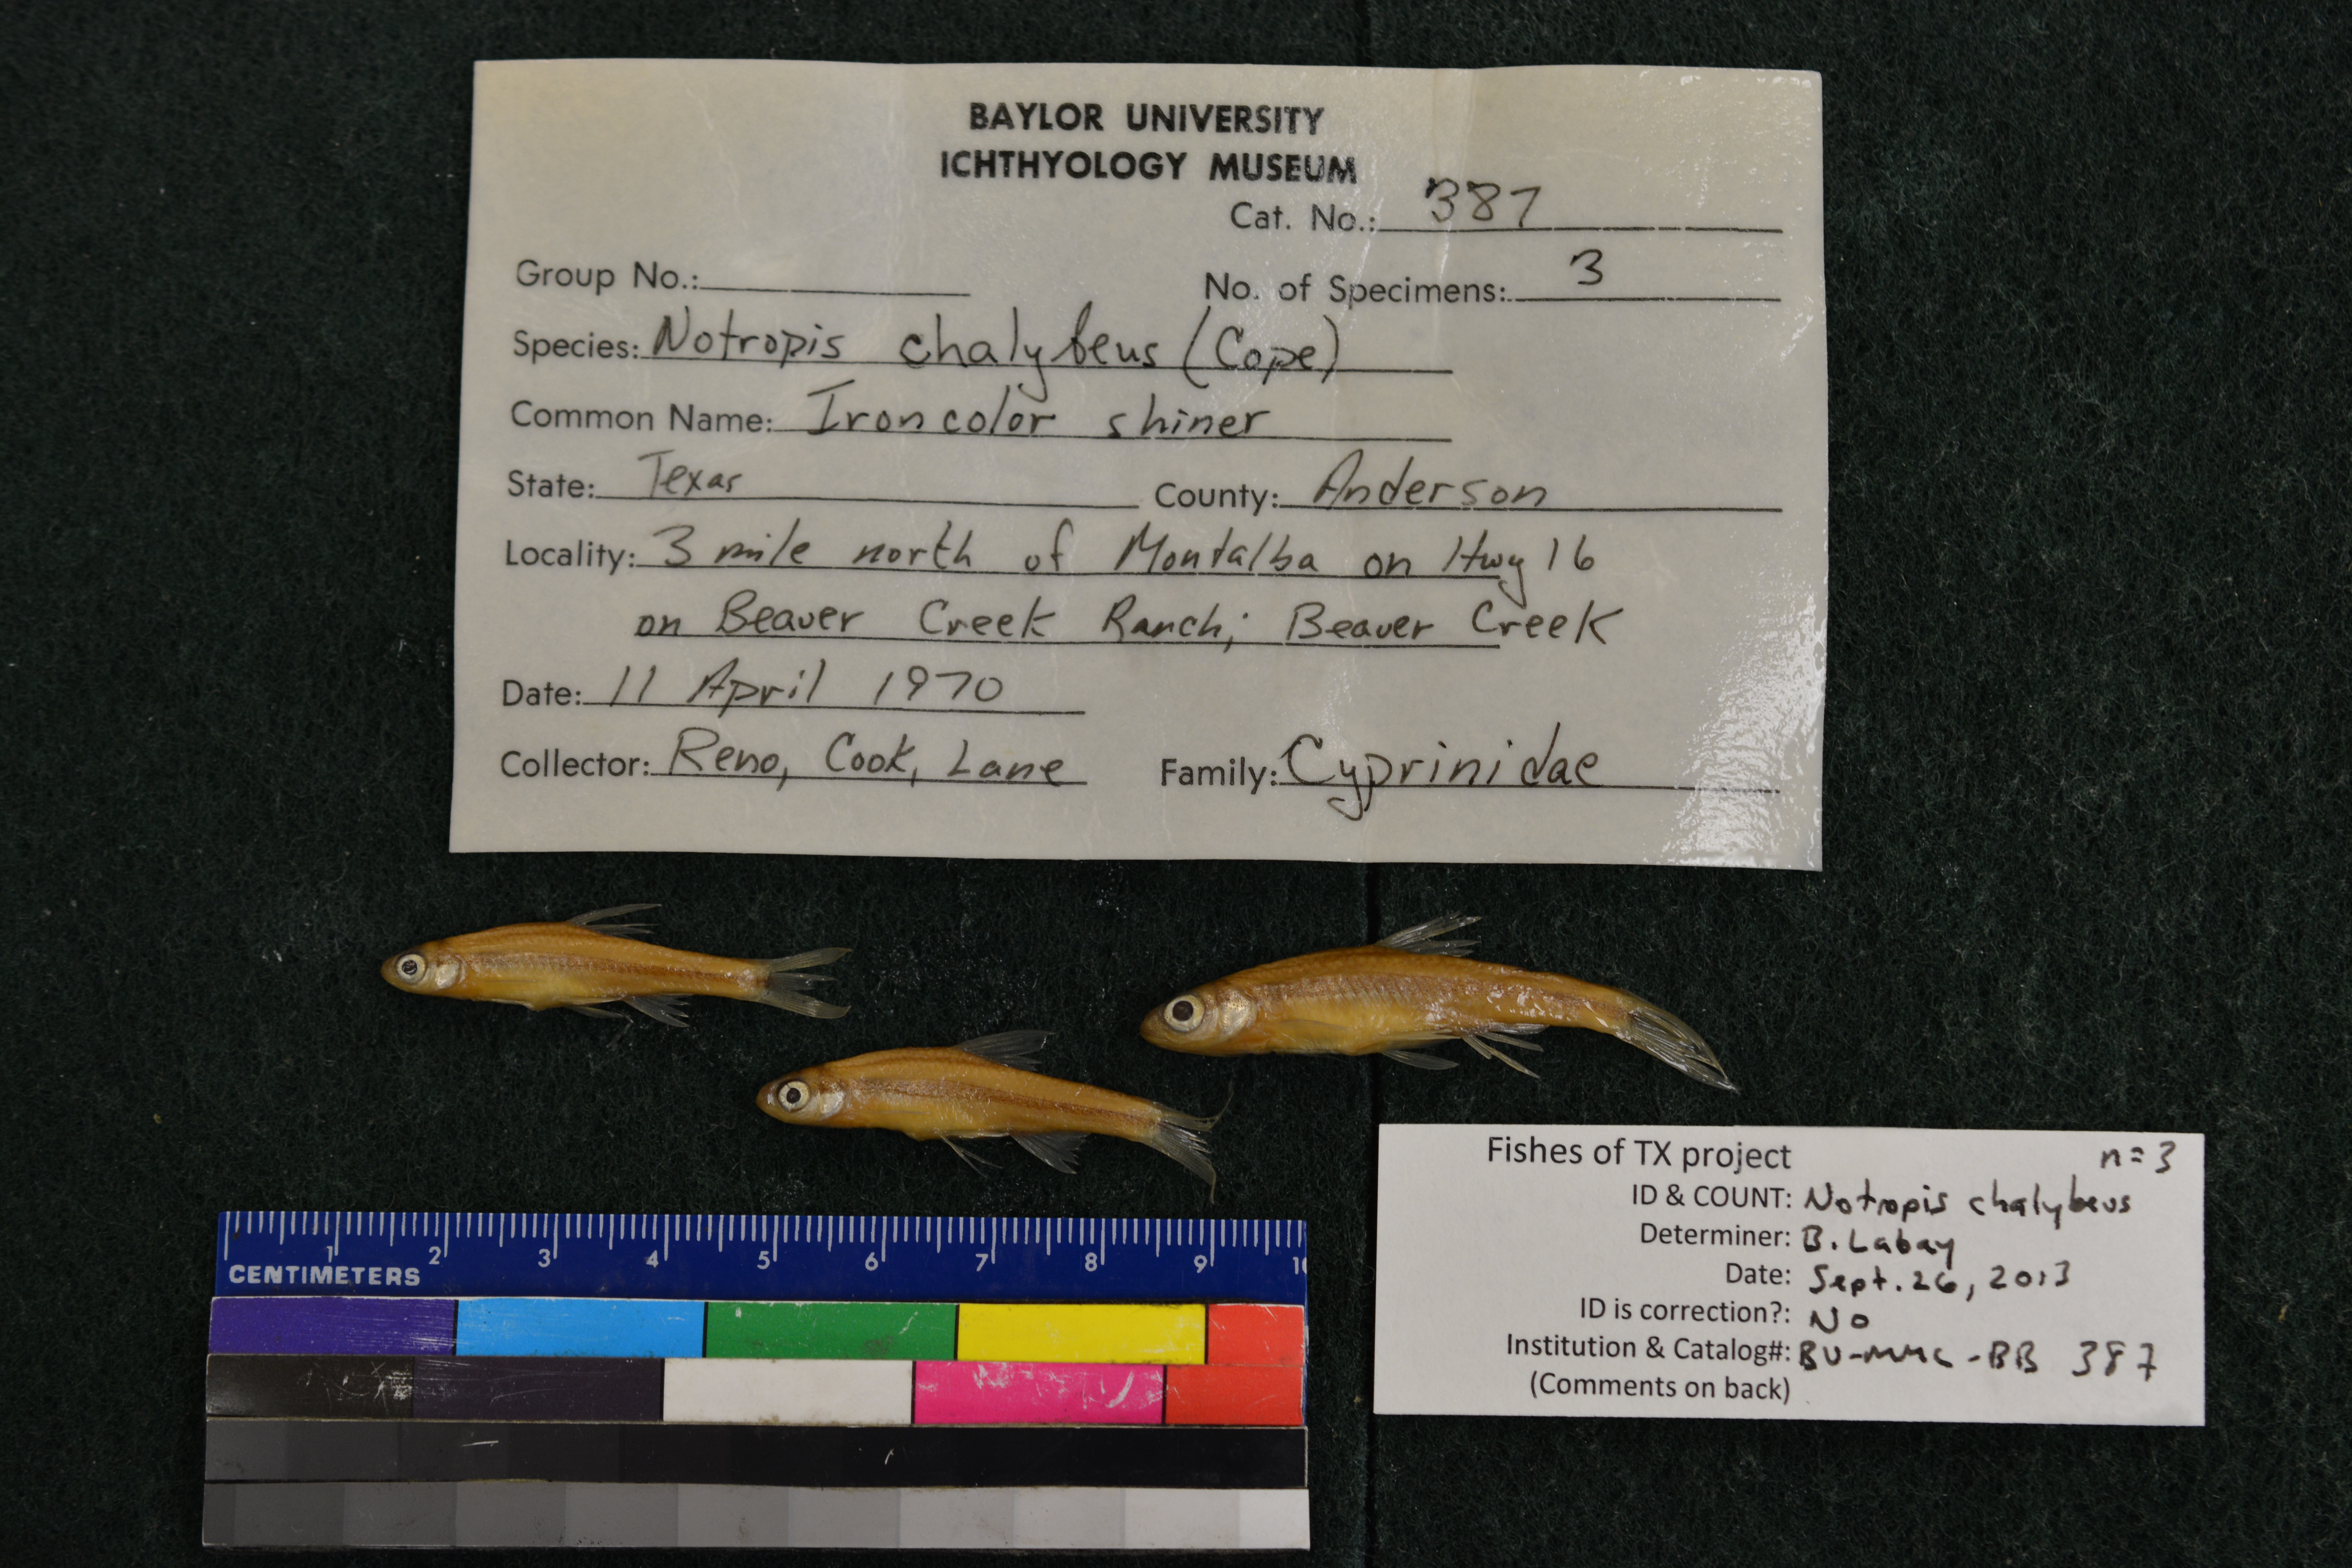 BAYLOR UNIVERSITY
ICHTHYOLOGY MUSEUM
Cat. No.: 387
Group No.:
No. of Specimens: 3
Species: Notropis chalybeus (Cope)
Common Name: Ironcolor shiner
State: Texas County: Anderson
Locality: 3 mile north of Montalba on Hwy 16
on Beaver Creek Ranch; Beaver Creek
Date: 11 April 1970
Collector: Reno, Cook, Lane Family: Cyprinidae
Fishes of TX project n=3
ID & COUNT: Notropis chalybeus
Determiner: B. Labay
Date: Sept. 26, 2013
ID is correction?: No
Institution & Catalog#: BU-MMC-BB 387
(Comments on back)
1 2 3 4 5 6 7 8 9 10
CENTIMETERS